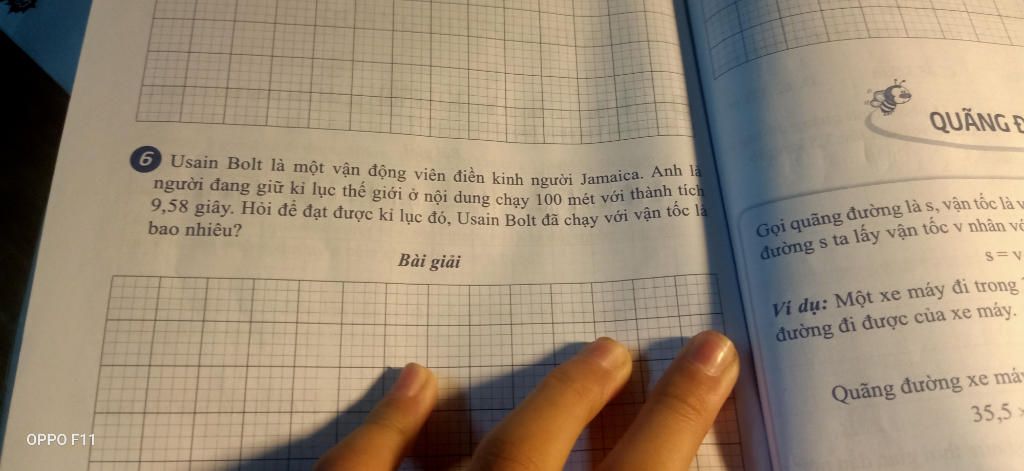 6 Usain Bolt là một vận động viên điền kinh người Jamaica. Anh là
người đang giữ kỉ lục thế giới ở nội dung chạy 100 mét với thành tích
9,58 giây. Hỏi để đạt được kỉ lục đó, Usain Bolt đã chạy với vận tốc là
bao nhiêu?
Bài giải
QUÃNG
Gọi quãng đường là s, vận tốc là v
đường s ta lấy vận tốc v nhân
s = v
Ví dụ: Một xe máy đi trong
đường đi được của xe máy.
Quãng đường xe
35,5
OPPO F11